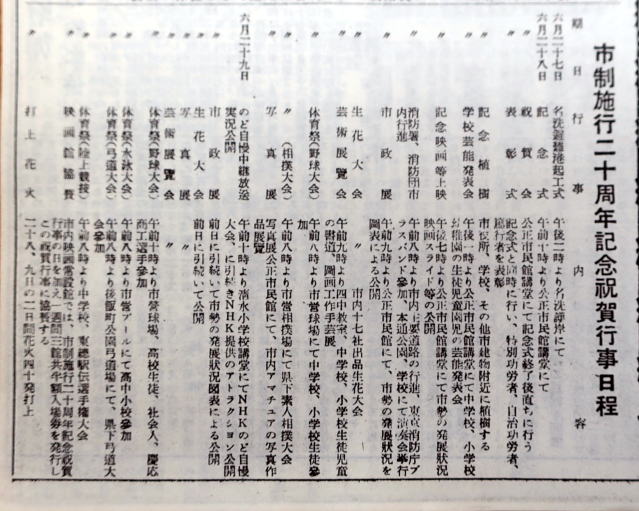 市制施行二十周年記念祝賀行事日程
期日 行事 内容
六月二十七日 名洗避難港起工式 午後二時より名洗海岸にて
六月二十八日 記念式 午前十時より公正市民館講堂にて
〃 祝賀会 公正市民館講堂にて記念式終了後直ちに行う
〃 表彰式 記念式と同時に行い、特別功労者、自治功労者、
篤行者を表彰
〃 記念植樹 市役所、学校、その他市建物附近に植樹する
〃 学校芸能発表会 午後一時より公正市民館講堂にて中学校、小学校
幼稚園の生徒児童園児の芸能発表会
〃 記念映画等上映 午後七時より公正市民館講堂にて市勢の発展状況
映画スライド等の公開
〃 消防署、消防団市内行進 午前八時より市内主要道路の行進、東京消防庁ブ
ラスバンド参加、本通公園、学校にて演奏会挙行
〃 市政展 午前九時より公正市民館にて、市勢の発展状況を
図表による公開
〃 生花大会 〃 市内十七社出品生花大会
〃 芸術展覧会 午前九時より四中教室、中学校、小学校生徒児童
の書道、図画工作手芸展
〃 体育祭(野球大会) 午前八時より市営球場にて中学校、小学校生徒参
加
〃 〃(相撲大会) 午前八時より市営相撲場にて県下素人相撲大会
〃 写真展 写真展公正市民館にて、市内アマチュアの写真作
品展覧
六月二十九日 のど自慢中継放送実況公開 午前十時より清水小学校講堂にてNHKのど自慢
大会、に引続きNHK提供のアトラクション公開
〃 市政展 前日に引続いて市勢の発展状況図表による公開
〃 生花大会 前日に引続いて公開
〃 写真展 〃
〃 芸術展覧会 〃
〃 体育祭(野球大会) 午前十時より市営球場、高校生徒、社会人、慶応
商工選手参加
〃 体育祭(水泳大会) 午前八時より市営プールにて高中小校参加
〃 体育祭(弓道大会) 午前八時より後飯町公園弓道場にて、県下弓道大
会参加
〃 体育祭(陸上競技) 午前八時より中学校、東穂駅伝選手権大会
映画館協賛 市内映画常設館では、市制施行二十周年記念祝賀
行事の日を挾み一週間三館共半額入場券を発行し
この祝賀行事に協賛する
〃 打上花火 二十八、九日の二日間花火四十発打上